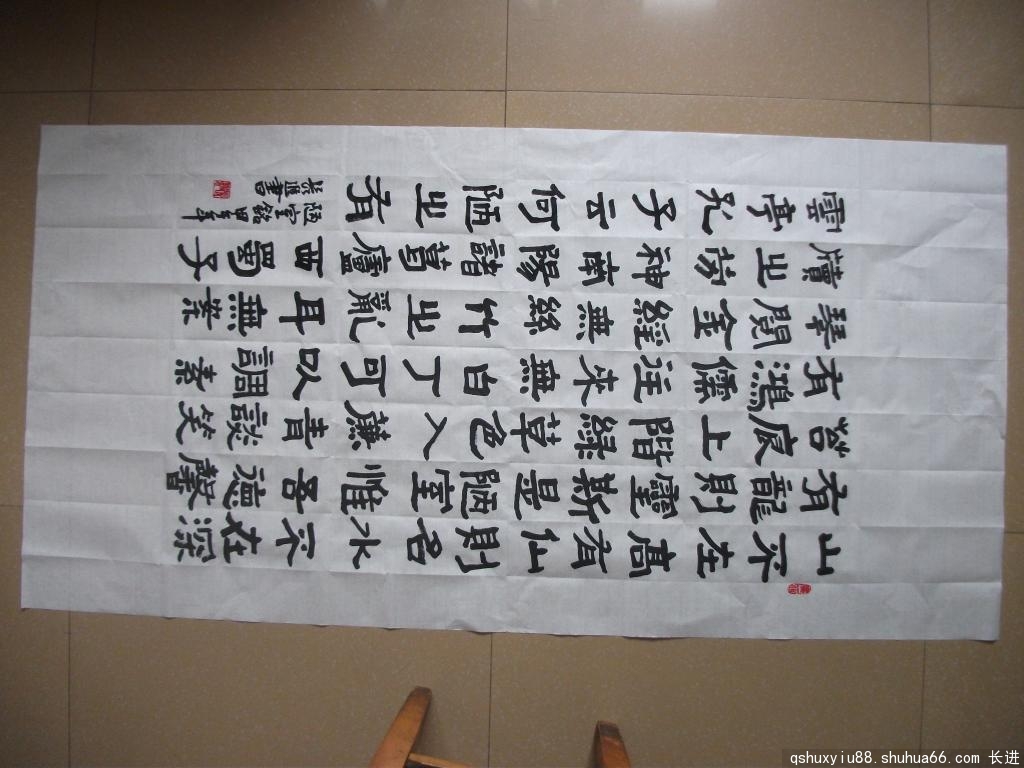 山不在高有仙則名水不在深
有龍則靈斯是陋室惟吾德馨
苔痕上階綠草色入簾青談笑
有鴻儒往來無白丁可以調素
琴閱金經無絲竹之亂耳無案
牘之勞神南陽諸葛廬西蜀子
雲亭孔子云何陋之有
陋室銘
書
qshuxyiu88.shuhua66.com 长进